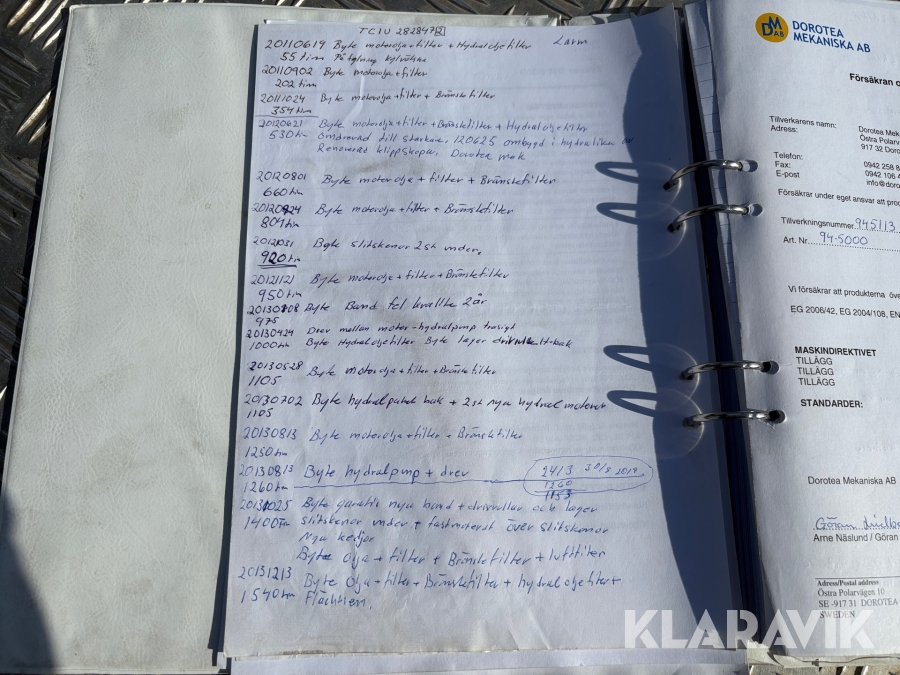 TCIU 282847
20110619 Byte motorolja + filter + Hydraloljefilter Larm
55 tim Påfylning kylvätska
20110902 Byte motorolja + filter
202 tim
20111024 Byte motorolja + filter + Bränslefilter
354 tim
20120621 Byte motorolja + filter + Bränslefilter + Hydraloljefilter
530 tim Omdragad till starkare. 120625 ombygd i hydraliken av
Renoverad klippskopa. Dorotea mek
20120801 Byte motorolja + filter + Bränslefilter
660 tim
20120824 Byte motorolja + filter + Bränslefilter
804 tim
20121031 Byte slitskenor 2st under.
920 tim
20121121 Byte motorolja + filter + Bränslefilter
950 tim
20130108 Byte Band fel kvallite 2år
975
20130424 Drev mellan motor-hydralpump trasigt
1000 tim Byte Hydraloljefilter Byte lager bak
20130528 Byte motorolja + filter + Bränslefilter
1105
20130702 Byte hydralpaket bak + 2st nya hydral motorer
1105
20130813 Byte motorolja + filter + Bränslefilter
1250 tim
20130813 Byte hydralpump + drev 2413 30/8 2019
1260 tim 1260
1153
20131025 Byte garanti nya band + drivrullar och lager
1400 tim slitskenor under + fastmonterat över slitskenor
Nya kedjor
Byte olja + filter + Bränslefilter + luftfilter
20131213 Byte olja + filter + Bränslefilter + hydraloljefilter +
1540 tim Fläktrem.
DMAB
DOROTEA
MEKANISKA AB
Försäkran o
Tillverkarens namn: Dorotea Mek
Adress: Östra Polarv
917 32 Doro
Telefon: 0942 258 8
Fax: 0942 106 4
E-post info@doro
Försäkrar under eget ansvar att prod
Tillverkningsnummer 945113
Art. Nr. 94-5000
Vi försäkrar att produkterna öve
EG 2006/42, EG 2004/108, EN
MASKINDIREKTIVET
TILLÄGG
TILLÄGG
TILLÄGG
STANDARDER:
Dorotea Mekaniska AB
Göran Lindbe
Arne Näslund / Göran
Adress/Postal address
Östra Polarvägen 10
SE -917 31 DOROTEA
SWEDEN
KLARAVIK